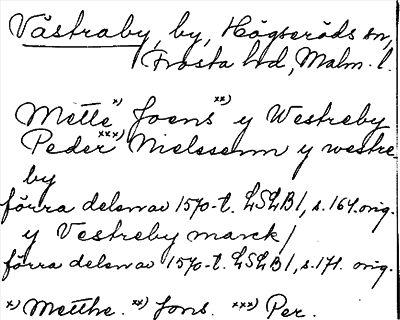 Västraby, by, Högseröds sn,
Frosta hd, Malm. l.
Mette x) Joens xx) y Westreby
Peder xxx) Nielssenn y westre-
by
förra delen av 1570-t. LSLB 1, s. 164 orig.
y Vestreby marck /
förra delen av 1570-t. LSLB 1, s. 171. orig.
x) Metthe. xx) Jons. xxx) Per.